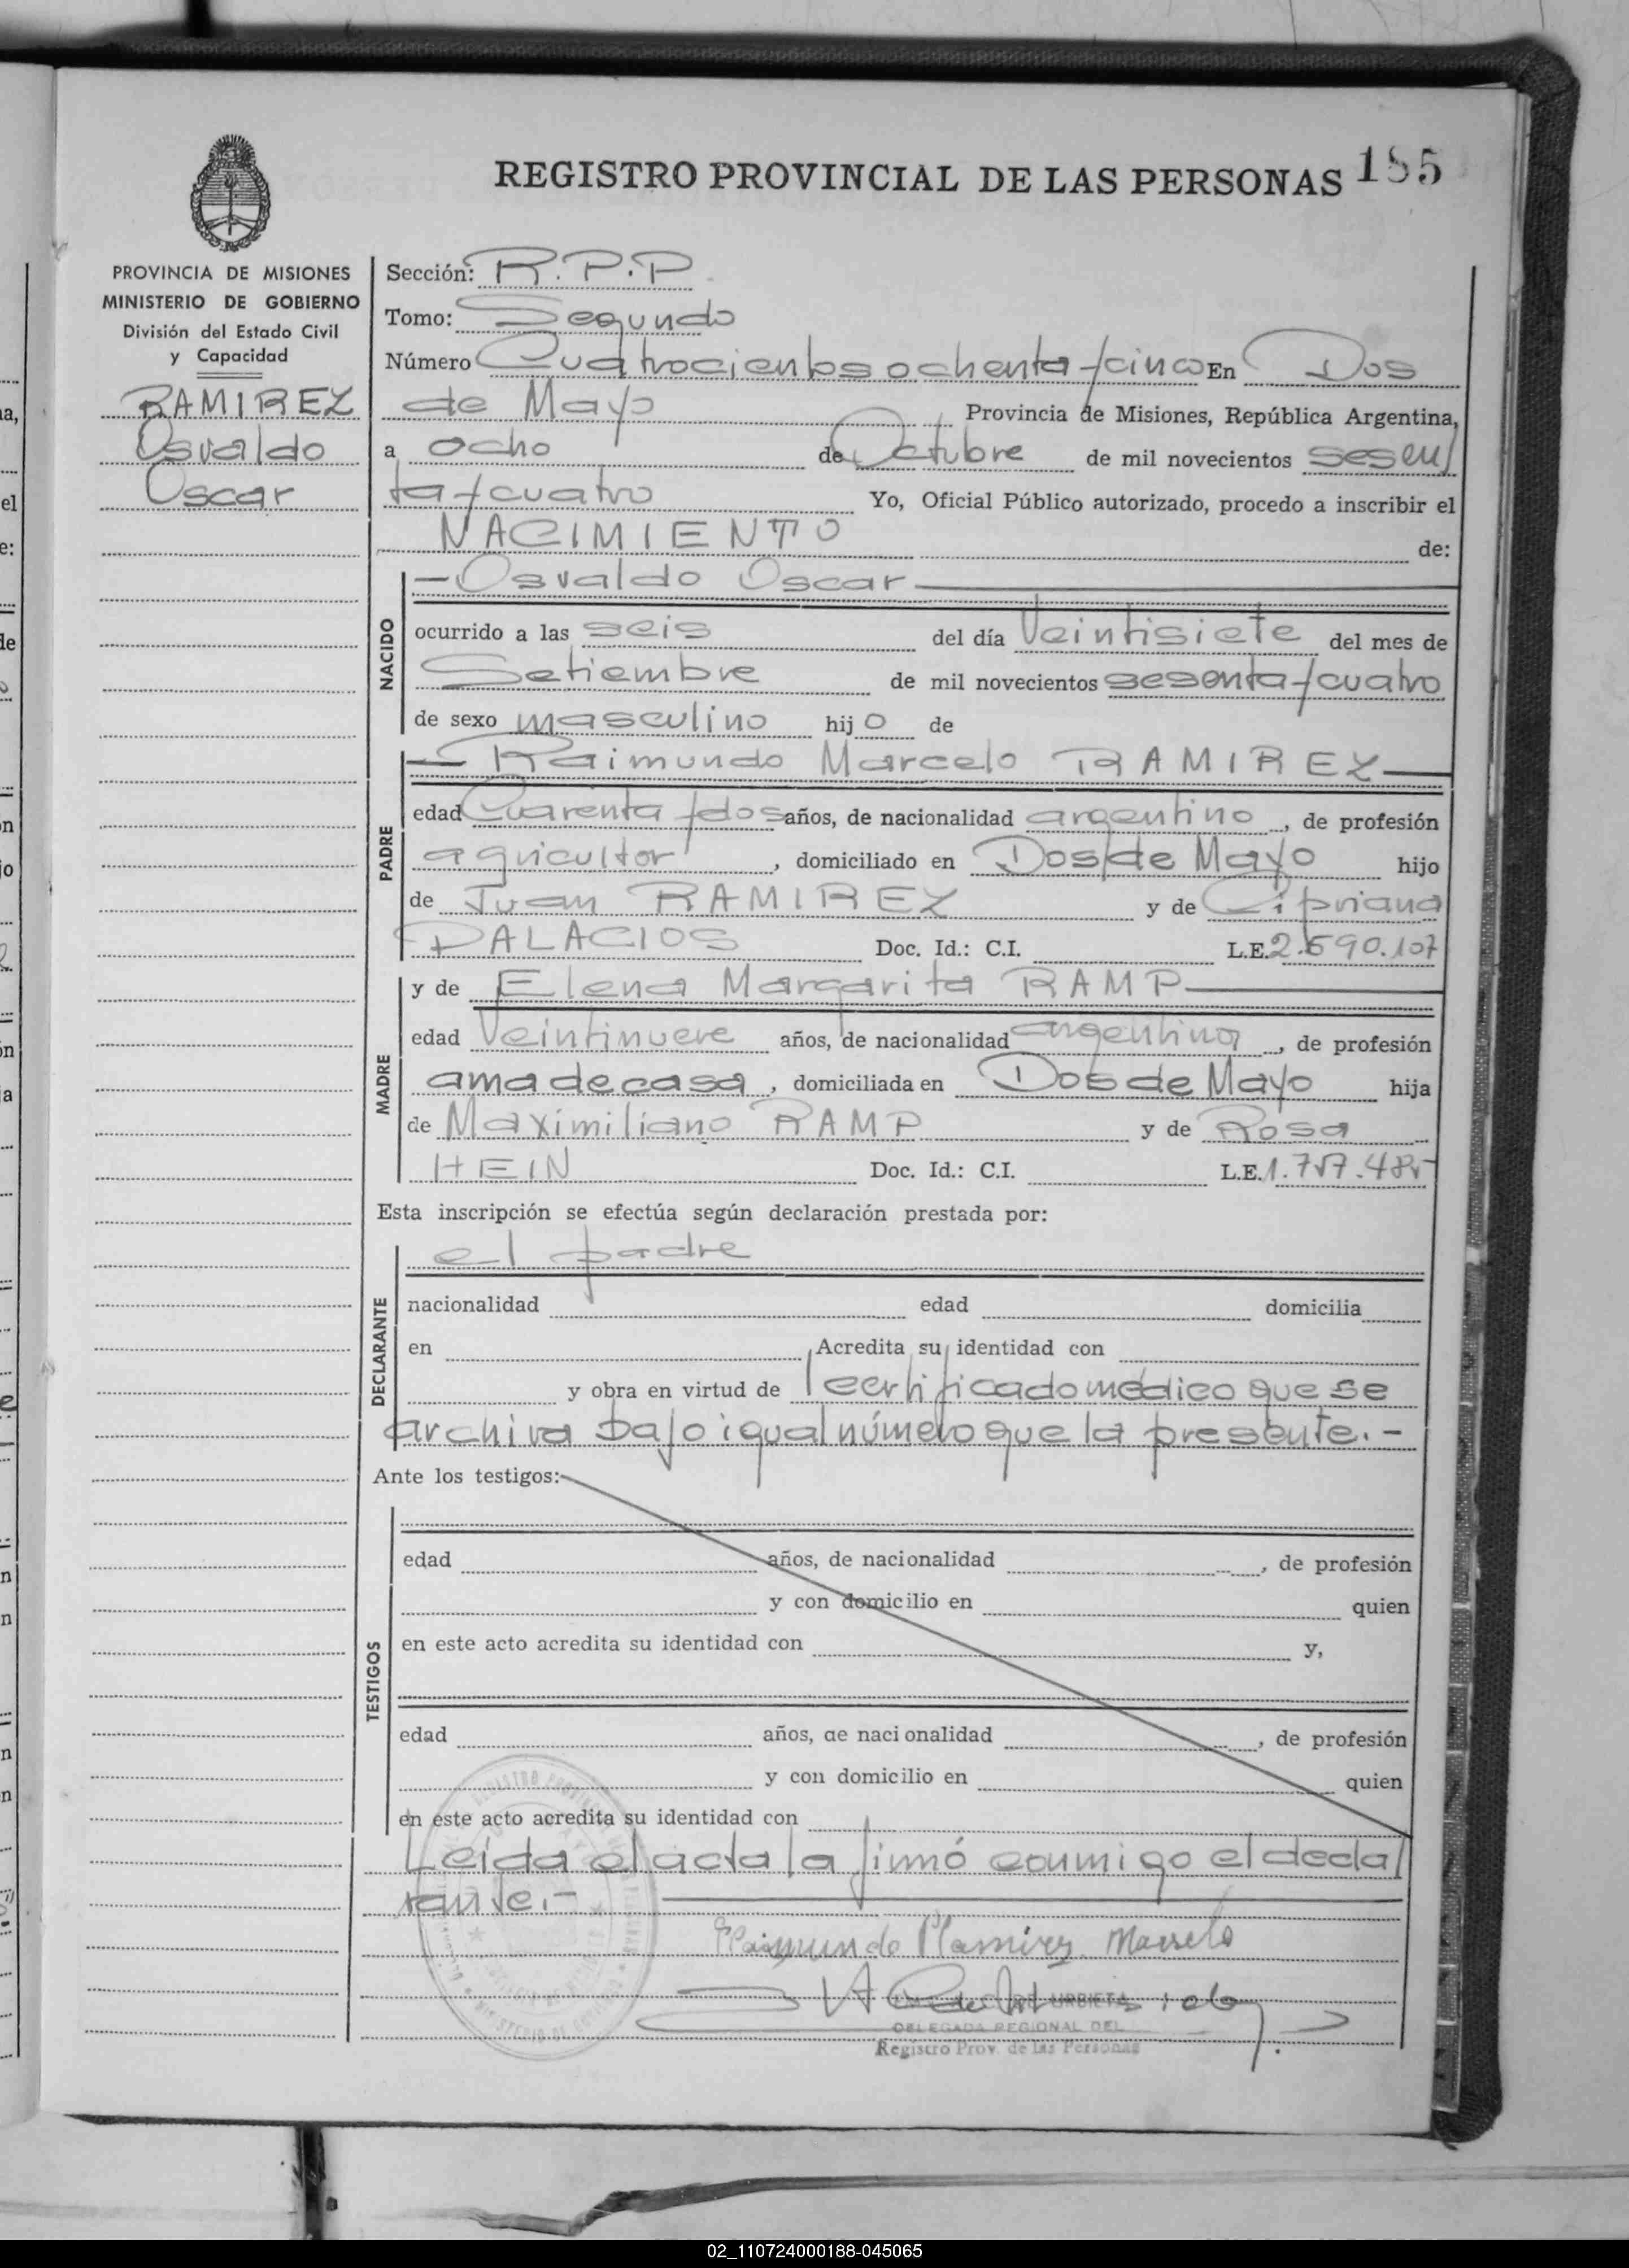 REGISTRO PROVINCIAL DE LAS PERSONAS 185
PROVINCIA DE MISIONES
MINISTERIO DE GOBIERNO
División del Estado Civil
y Capacidad
RAMIREZ
Osvaldo
Oscar
Sección: R.P.P.
Tomo: Segundo
Número Cuatrocientos ochenta y cinco En Dos
de Mayo Provincia de Misiones, República Argentina,
a ocho de Octubre de mil novecientos sesen
ta y cuatro Yo, Oficial Público autorizado, procedo a inscribir el
NACIMIENTO de:
NACIDO
— Osvaldo Oscar —
ocurrido a las seis del día Veintisiete del mes de
Setiembre de mil novecientos sesenta y cuatro
de sexo masculino hijo de
PADRE
— Raimundo Marcelo RAMIREZ —
edad Cuarenta y dos años, de nacionalidad argentino, de profesión
agricultor, domiciliado en Dos de Mayo hijo
de Juan RAMIREZ y de Cipriana
PALACIOS Doc. Id.: C.I. L.E. 2.590.107
MADRE
y de Elena Margarita RAMP —
edad Veintinueve años, de nacionalidad argentina, de profesión
ama de casa, domiciliada en Dos de Mayo hija
de Maximiliano RAMP y de Rosa
HEIN Doc. Id.: C.I. L.E. 1.757.485
Esta inscripción se efectúa según declaración prestada por:
DECLARANTE
el padre
nacionalidad edad domicilia
en Acredita su identidad con
y obra en virtud de certificado médico que se
archiva bajo igual número que la presente.-
Ante los testigos:
TESTIGOS
edad años, de nacionalidad , de profesión
y con domicilio en quien
en este acto acredita su identidad con y,
edad años, de nacionalidad , de profesión
y con domicilio en quien
en este acto acredita su identidad con
Leída el acta la firmó conmigo el decla
rante.-
Raimundo Ramirez Marcelo
URBIETA
DELEGADA REGIONAL DEL
Registro Prov. de las Personas
02_110724000188-045065